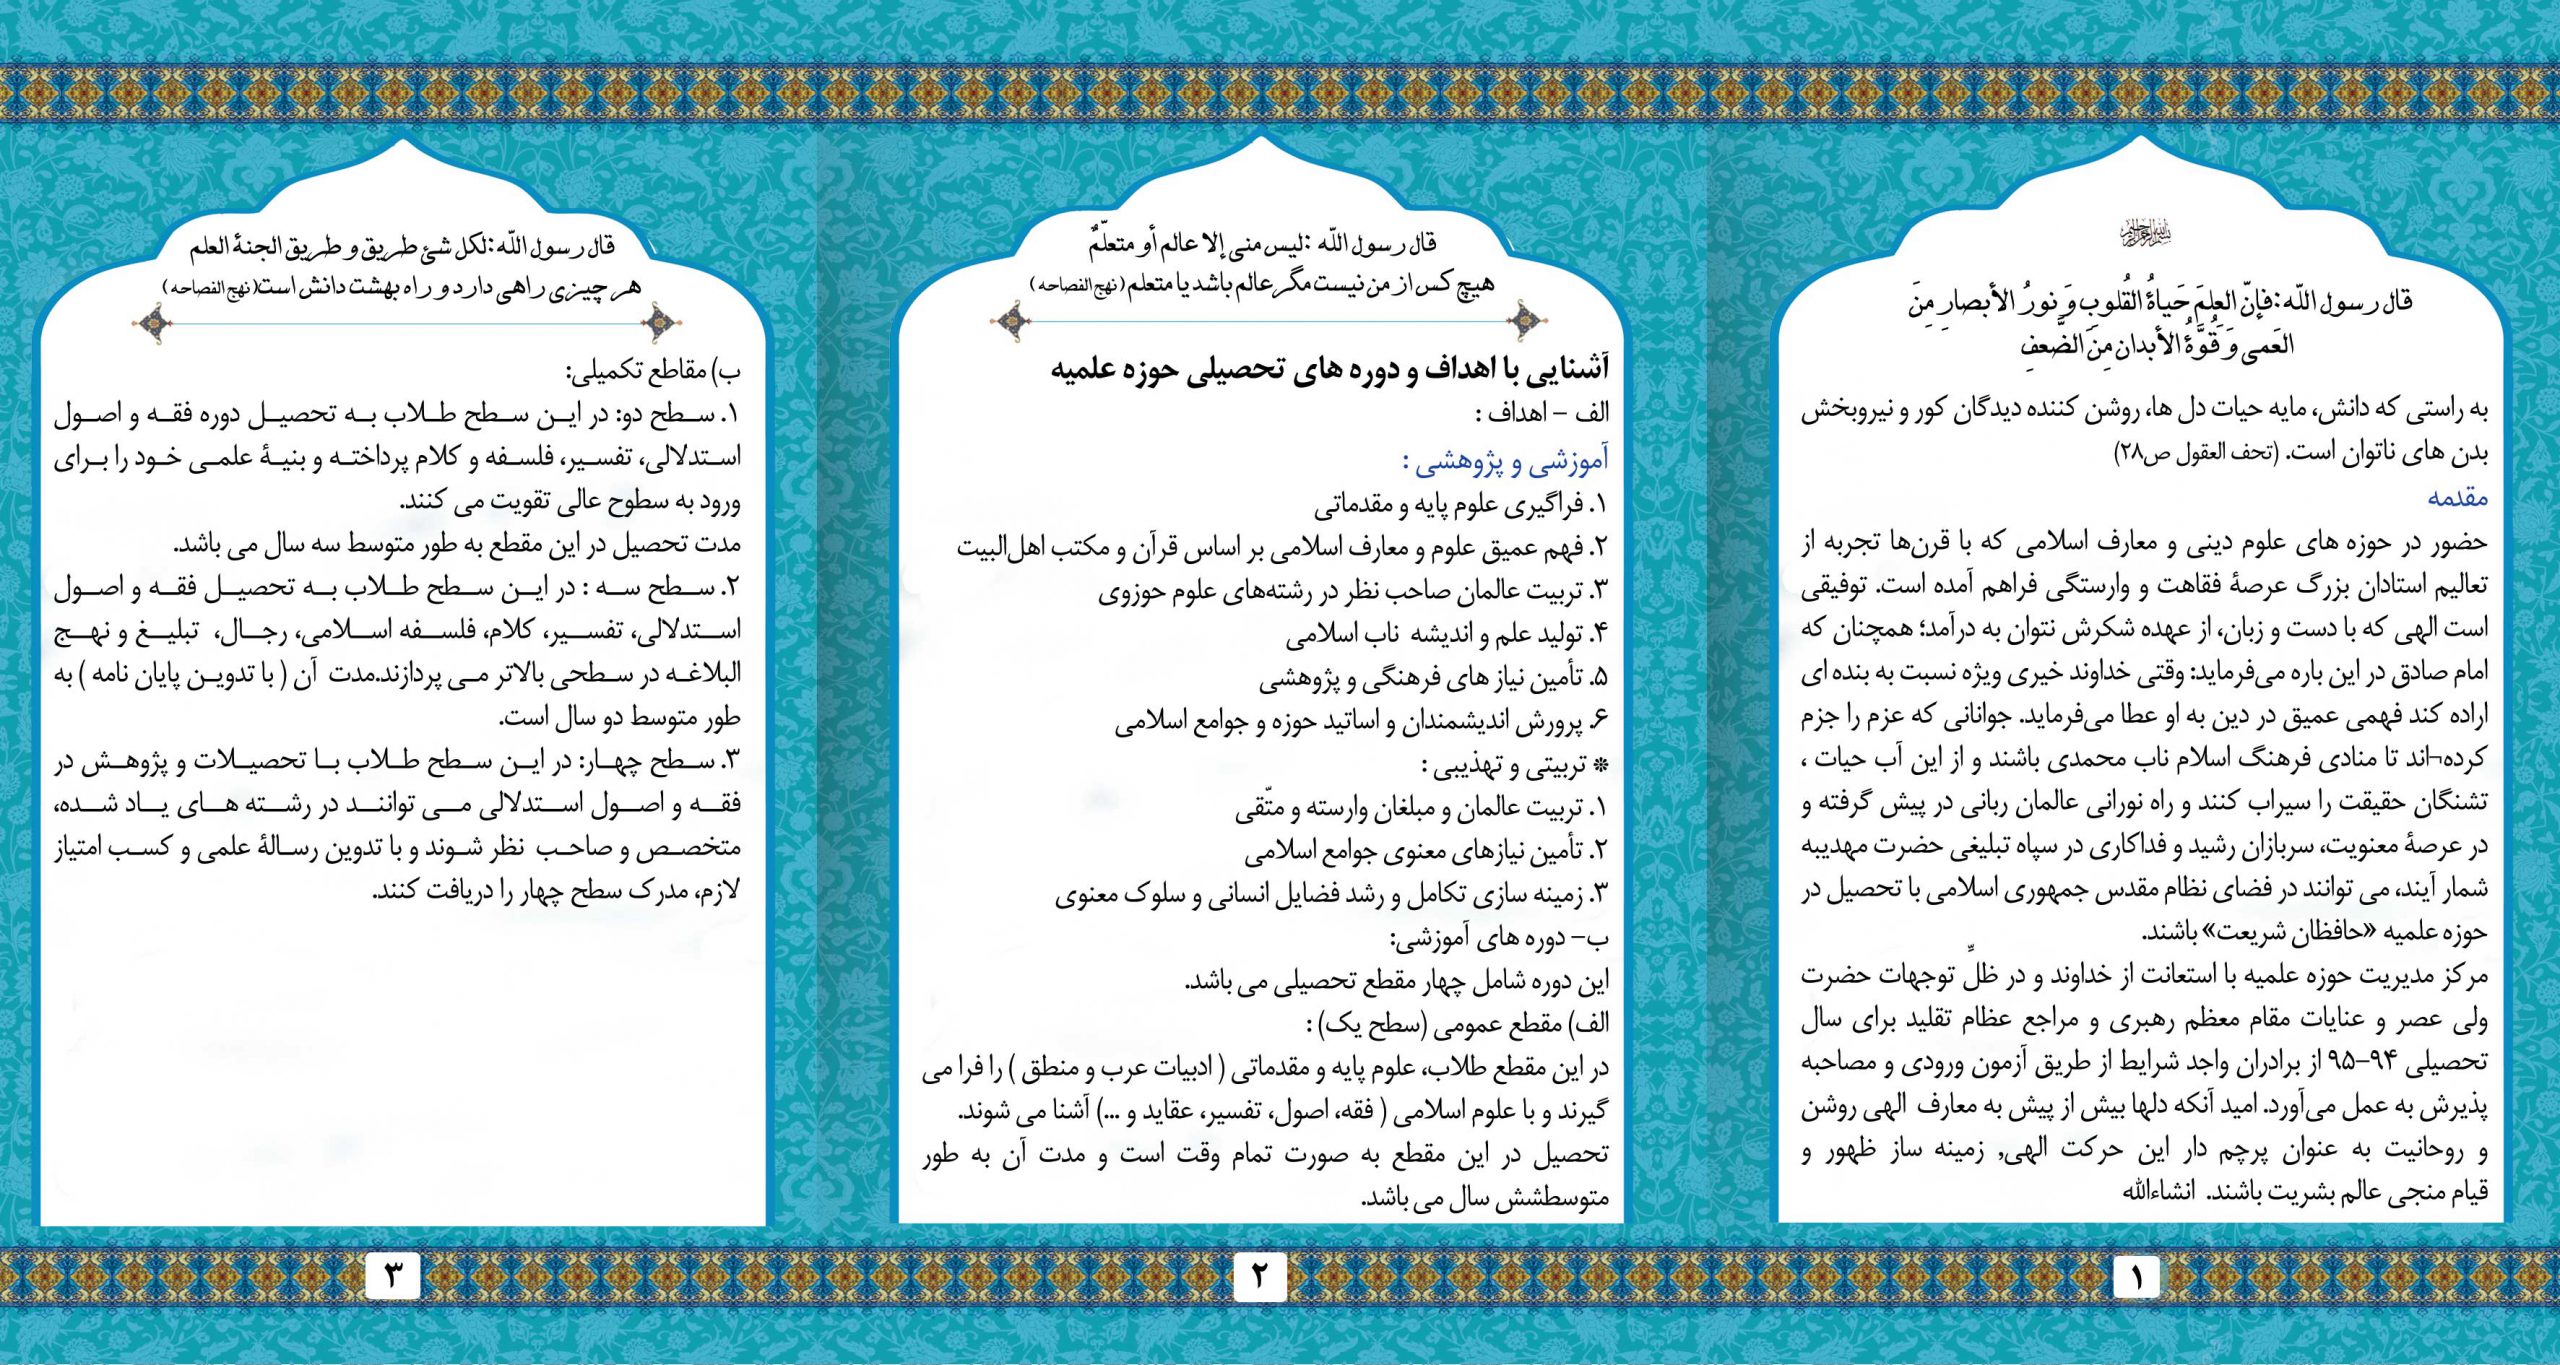 بسم الله الرحمن الرحیم
قال رسول اللّه: فإنّ العِلمَ حَیاةُ القُلوبِ وَ نورُ الأبصارِ مِنَ
العَمی وَ قُوَّةُ الأبدانِ مِنَ الضَّعفِ
به راستی که دانش، مایه حیات دل ها، روشن کننده دیدگان کور و نیروبخش
بدن های ناتوان است. (تحف العقول ص۲۸)
مقدمه
حضور در حوزه های علوم دینی و معارف اسلامی که با قرن‌ها تجربه از
تعالیم استادان بزرگ عرصۀ فقاهت و وارستگی فراهم آمده است. توفیقی
است الهی که با دست و زبان، از عهده شکرش نتوان به درآمد؛ همچنان که
امام صادق در این باره می‌فرماید: وقتی خداوند خیری ویژه نسبت به بنده ای
اراده کند فهمی عمیق در دین به او عطا می‌فرماید. جوانانی که عزم را جزم
کرده¬اند تا منادی فرهنگ اسلام ناب محمدی باشند و از این آب حیات ،
تشنگان حقیقت را سیراب کنند و راه نورانی عالمان ربانی در پیش گرفته و
در عرصۀ معنویت، سربازان رشید و فداکاری در سپاه تبلیغی حضرت مهدیبه
شمار آیند، می توانند در فضای نظام مقدس جمهوری اسلامی با تحصیل در
حوزه علمیه «حافظان شریعت» باشند.
مرکز مدیریت حوزه علمیه با استعانت از خداوند و در ظلِّ توجهات حضرت
ولی عصر و عنایات مقام معظم رهبری و مراجع عظام تقلید برای سال
تحصیلی ۹۴-۹۵ از برادران واجد شرایط از طریق آزمون ورودی و مصاحبه
پذیرش به عمل می‌آورد. امید آنکه دلها بیش از پیش به معارف الهی روشن
و روحانیت به عنوان پرچم دار این حرکت الهی, زمینه ساز ظهور و
قیام منجی عالم بشریت باشند. انشاءالله
۱
قال رسول اللّه :لیس منی إلا عالم أو متعلّمٌ
هیچ کس از من نیست مگر عالم باشد یا متعلم (نهج الفصاحه)
آشنایی با اهداف و دوره های تحصیلی حوزه علمیه
الف – اهداف :
آموزشی و پژوهشی :
۱. فراگیری علوم پایه و مقدماتی
۲. فهم عمیق علوم و معارف اسلامی بر اساس قرآن و مکتب اهل‌البیت
۳. تربیت عالمان صاحب نظر در رشته‌های علوم حوزوی
۴. تولید علم و اندیشه ناب اسلامی
۵. تأمین نیاز های فرهنگی و پژوهشی
۶. پرورش اندیشمندان و اساتید حوزه و جوامع اسلامی
* تربیتی و تهذیبی :
۱. تربیت عالمان و مبلغان وارسته و متّقی
۲. تأمین نیازهای معنوی جوامع اسلامی
۳. زمینه سازی تکامل و رشد فضایل انسانی و سلوک معنوی
ب– دوره های آموزشی:
این دوره شامل چهار مقطع تحصیلی می باشد.
الف) مقطع عمومی (سطح یک) :
در این مقطع طلاب، علوم پایه و مقدماتی ( ادبیات عرب و منطق ) را فرا می
گیرند و با علوم اسلامی ( فقه، اصول، تفسیر، عقاید و ...) آشنا می شوند.
تحصیل در این مقطع به صورت تمام وقت است و مدت آن به طور
متوسطشش سال می باشد.
۲
قال رسول اللّه:لکل شئ طریق و طریق الجنۀ العلم
هر چیزی راهی دارد و راه بهشت دانش است(نهج الفصاحه)
ب) مقاطع تکمیلی:
۱. سطح دو: در این سطح طلاب به تحصیل دوره فقه و اصول
استدلالی، تفسیر، فلسفه و کلام پرداخته و بنیۀ علمی خود را برای
ورود به سطوح عالی تقویت می کنند.
مدت تحصیل در این مقطع به طور متوسط سه سال می باشد.
۲. سطح سه : در این سطح طلاب به تحصیل فقه و اصول
استدلالی، تفسیر، کلام، فلسفه اسلامی، رجال، تبلیغ و نهج
البلاغه در سطحی بالاتر می پردازند.مدت آن ( با تدوین پایان نامه ) به
طور متوسط دو سال است.
۳. سطح چهار: در این سطح طلاب با تحصیلات و پژوهش در
فقه و اصول استدلالی می توانند در رشته های یاد شده،
متخصص و صاحب نظر شوند و با تدوین رسالۀ علمی و کسب امتیاز
لازم، مدرک سطح چهار را دریافت کنند.
۳